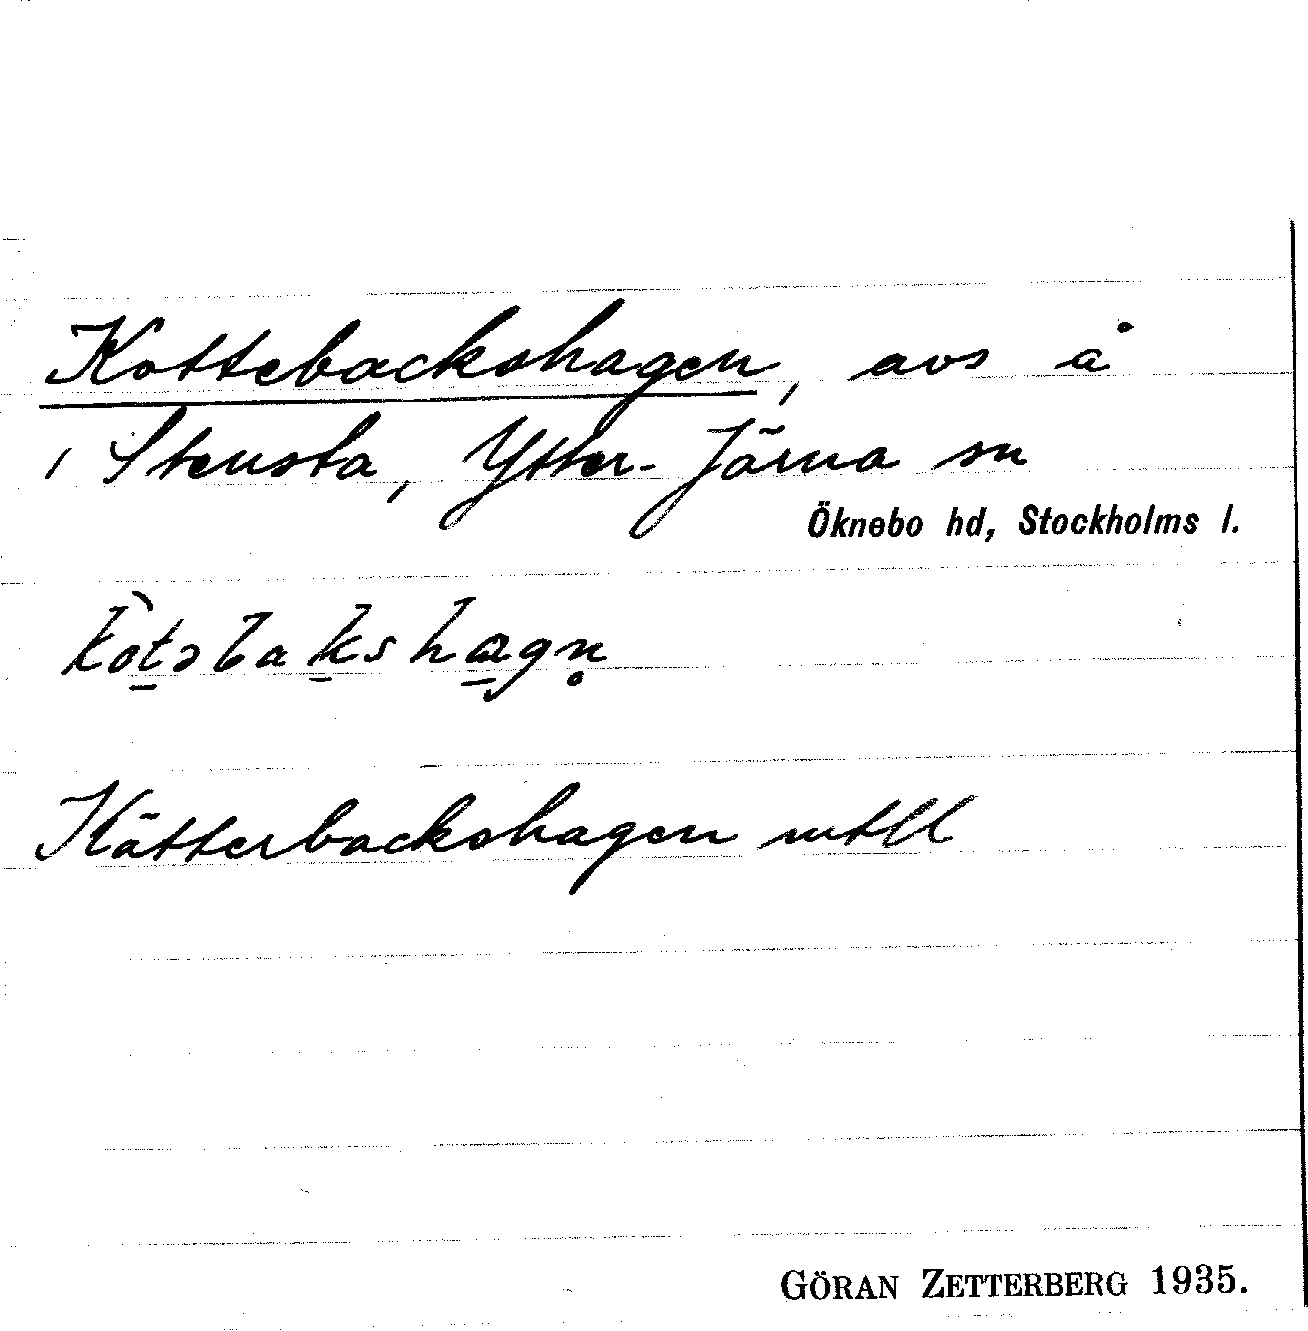 Kottebackshagen, avs å
i Stensta, Ytter-Järna sn
Öknebo hd, Stockholms l.
kòt̠əbak̠sha̠gn̥
Kätterbackshagen mtll
GÖRAN ZETTERBERG 1935.